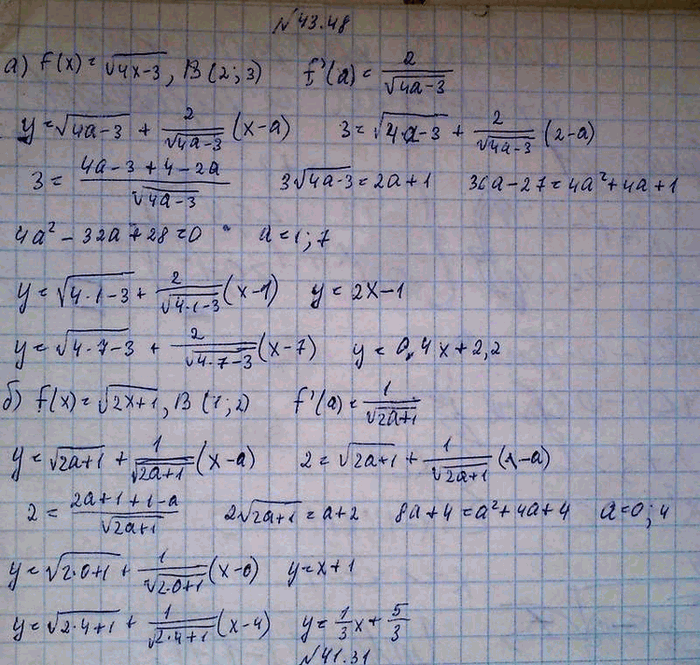 №43.48
а) f(x) = √(4x-3), B(2; 3) f'(a) = 2/√(4a-3)
y = √(4a-3) + 2/√(4a-3) (x-a) 3 = √(4a-3) + 2/√(4a-3) (2-a)
3 = (4a-3+4-2a)/√(4a-3) 3√(4a-3) = 2a+1 36a-27 = 4a²+4a+1
4a² - 32a + 28 = 0 a = 1; 7
y = √(4·1-3) + 2/√(4·1-3) (x-1) y = 2x-1
y = √(4·7-3) + 2/√(4·7-3) (x-7) y = 0,4x + 2,2
б) f(x) = √(2x+1), B(1; 2) f'(a) = 1/√(2a+1)
y = √(2a+1) + 1/√(2a+1) (x-a) 2 = √(2a+1) + 1/√(2a+1) (1-a)
2 = (2a+1+1-a)/√(2a+1) 2√(2a+1) = a+2 8a+4 = a²+4a+4 a = 0; 4
y = √(2·0+1) + 1/√(2·0+1) (x-0) y = x+1
y = √(2·4+1) + 1/√(2·4+1) (x-4) y = 1/3 x + 5/3
№41.31